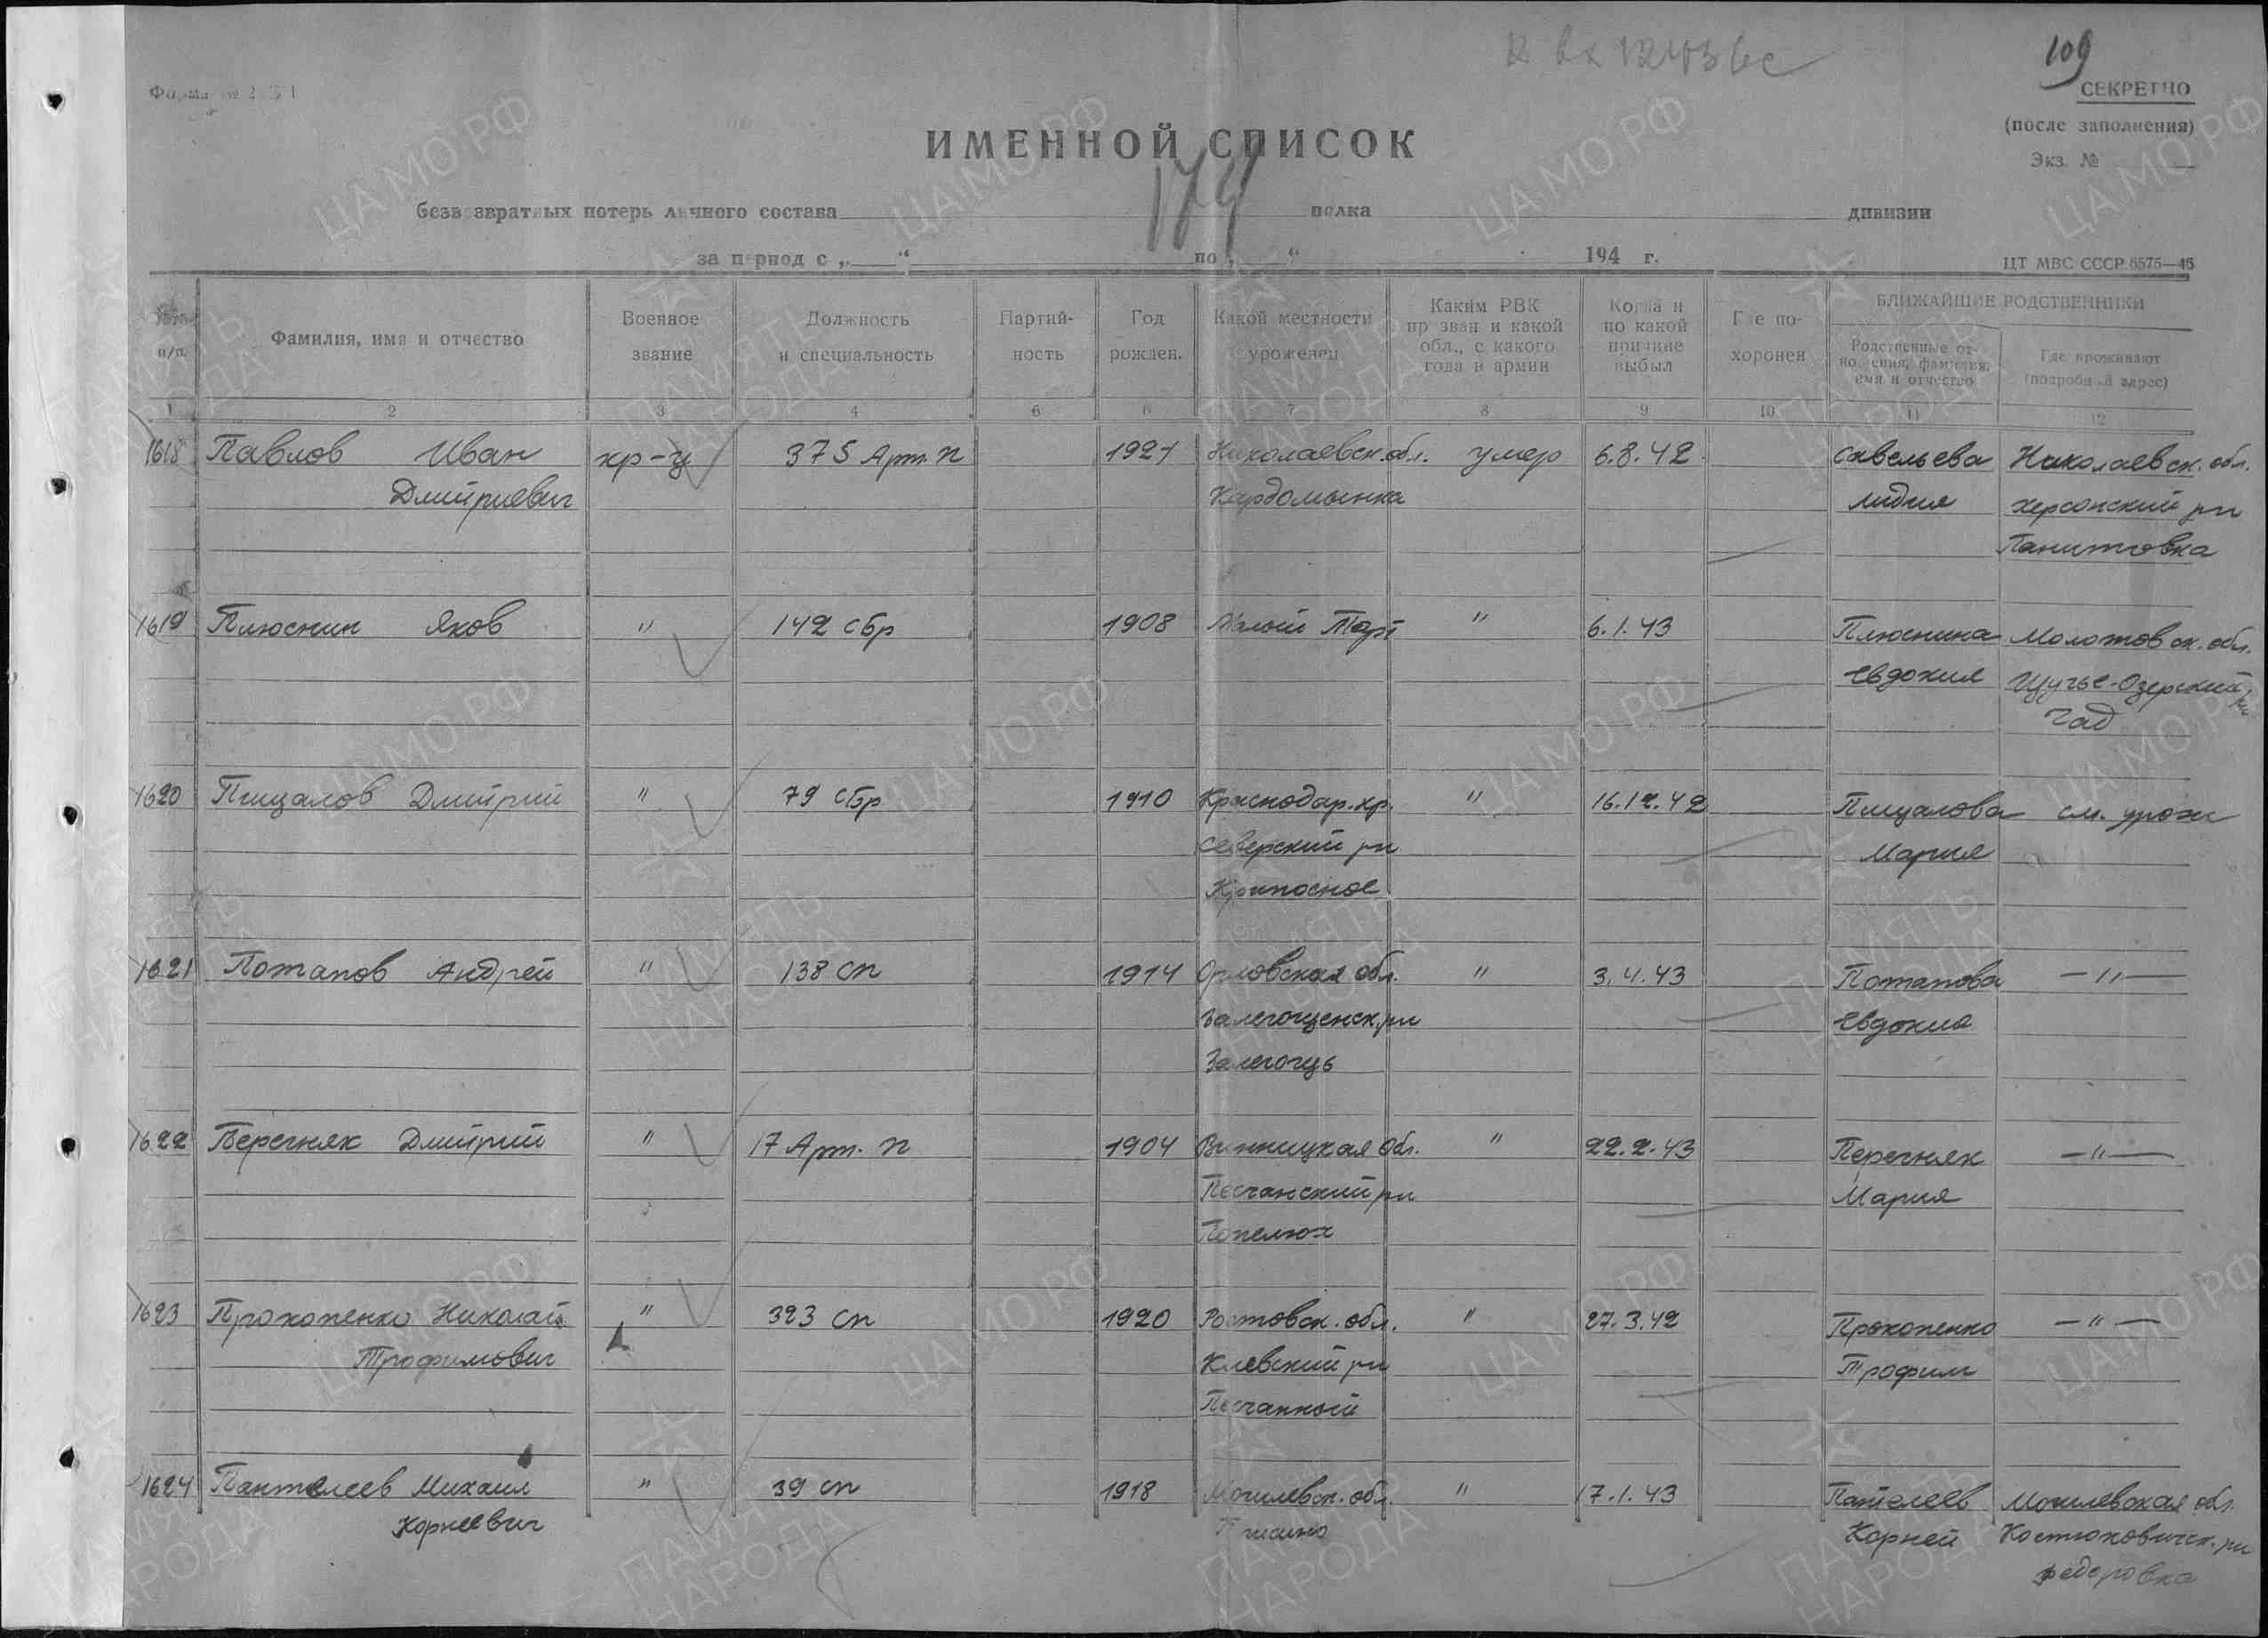 109
СЕКРЕТНО
(после заполнения)
Экз. №
ИМЕННОЙ СПИСОК
безвозвратных потерь личного состава полка дивизии
за период с „ “ по „ “ 194 г.
ЦТ МВС СССР 6575—46
№№ п/п. Фамилия, имя и отчество Военное звание Должность и специальность Партийность Год рожден. Какой местности уроженец Каким РВК призван и какой обл., с какого года в армии Когда и по какой причине выбыл Где похоронен БЛИЖАЙШИЕ РОДСТВЕННИКИ
Родственные отношения, фамилия, имя и отчество Где проживают (подробный адрес)
1 2 3 4 5 6 7 8 9 10 11 12
1618 Павлов Иван кр-ц 375 Арт. п 1921 Николаевск. обл. умер 6.8.42 Савельева Николаевск. обл.
Дмитриевич Кардомынка Лидия Херсонский рн
1619 Плюснин Яков " 142 сбр 1908 Малый Тарт " 6.1.43 Плюснина Молотовск. обл.
Евдокия Щучье-Озерский рн
Чад
1620 Пищалов Дмитрий " 79 сбр 1910 Краснодар. кр. " 16.12.42 Пищалова см. урож
Северский рн Мария
Крипосное
1621 Потапов Андрей " 138 сп 1914 Орловская обл. " 3.4.43 Потапова — " —
Залегощенск. рн Евдокия
Залегощь
1622 Перегняк Дмитрий " 17 Арт. п 1904 Винницкая обл. " 22.2.43 Перегняк — " —
Песчанский рн Мария
Попелюх
1623 Прокопенко Николай " 323 сп 1920 Ростовск. обл. " 27.3.42 Прокопенко — " —
Трофимович Киевский рн Трофим
Песчанный
1624 Пантелеев Михаил " 39 сп 1918 Могилевск. обл. " 17.1.43 Пателеев Могилевская обл.
Корнеевич Корней Костюковичск. рн
Федоровка